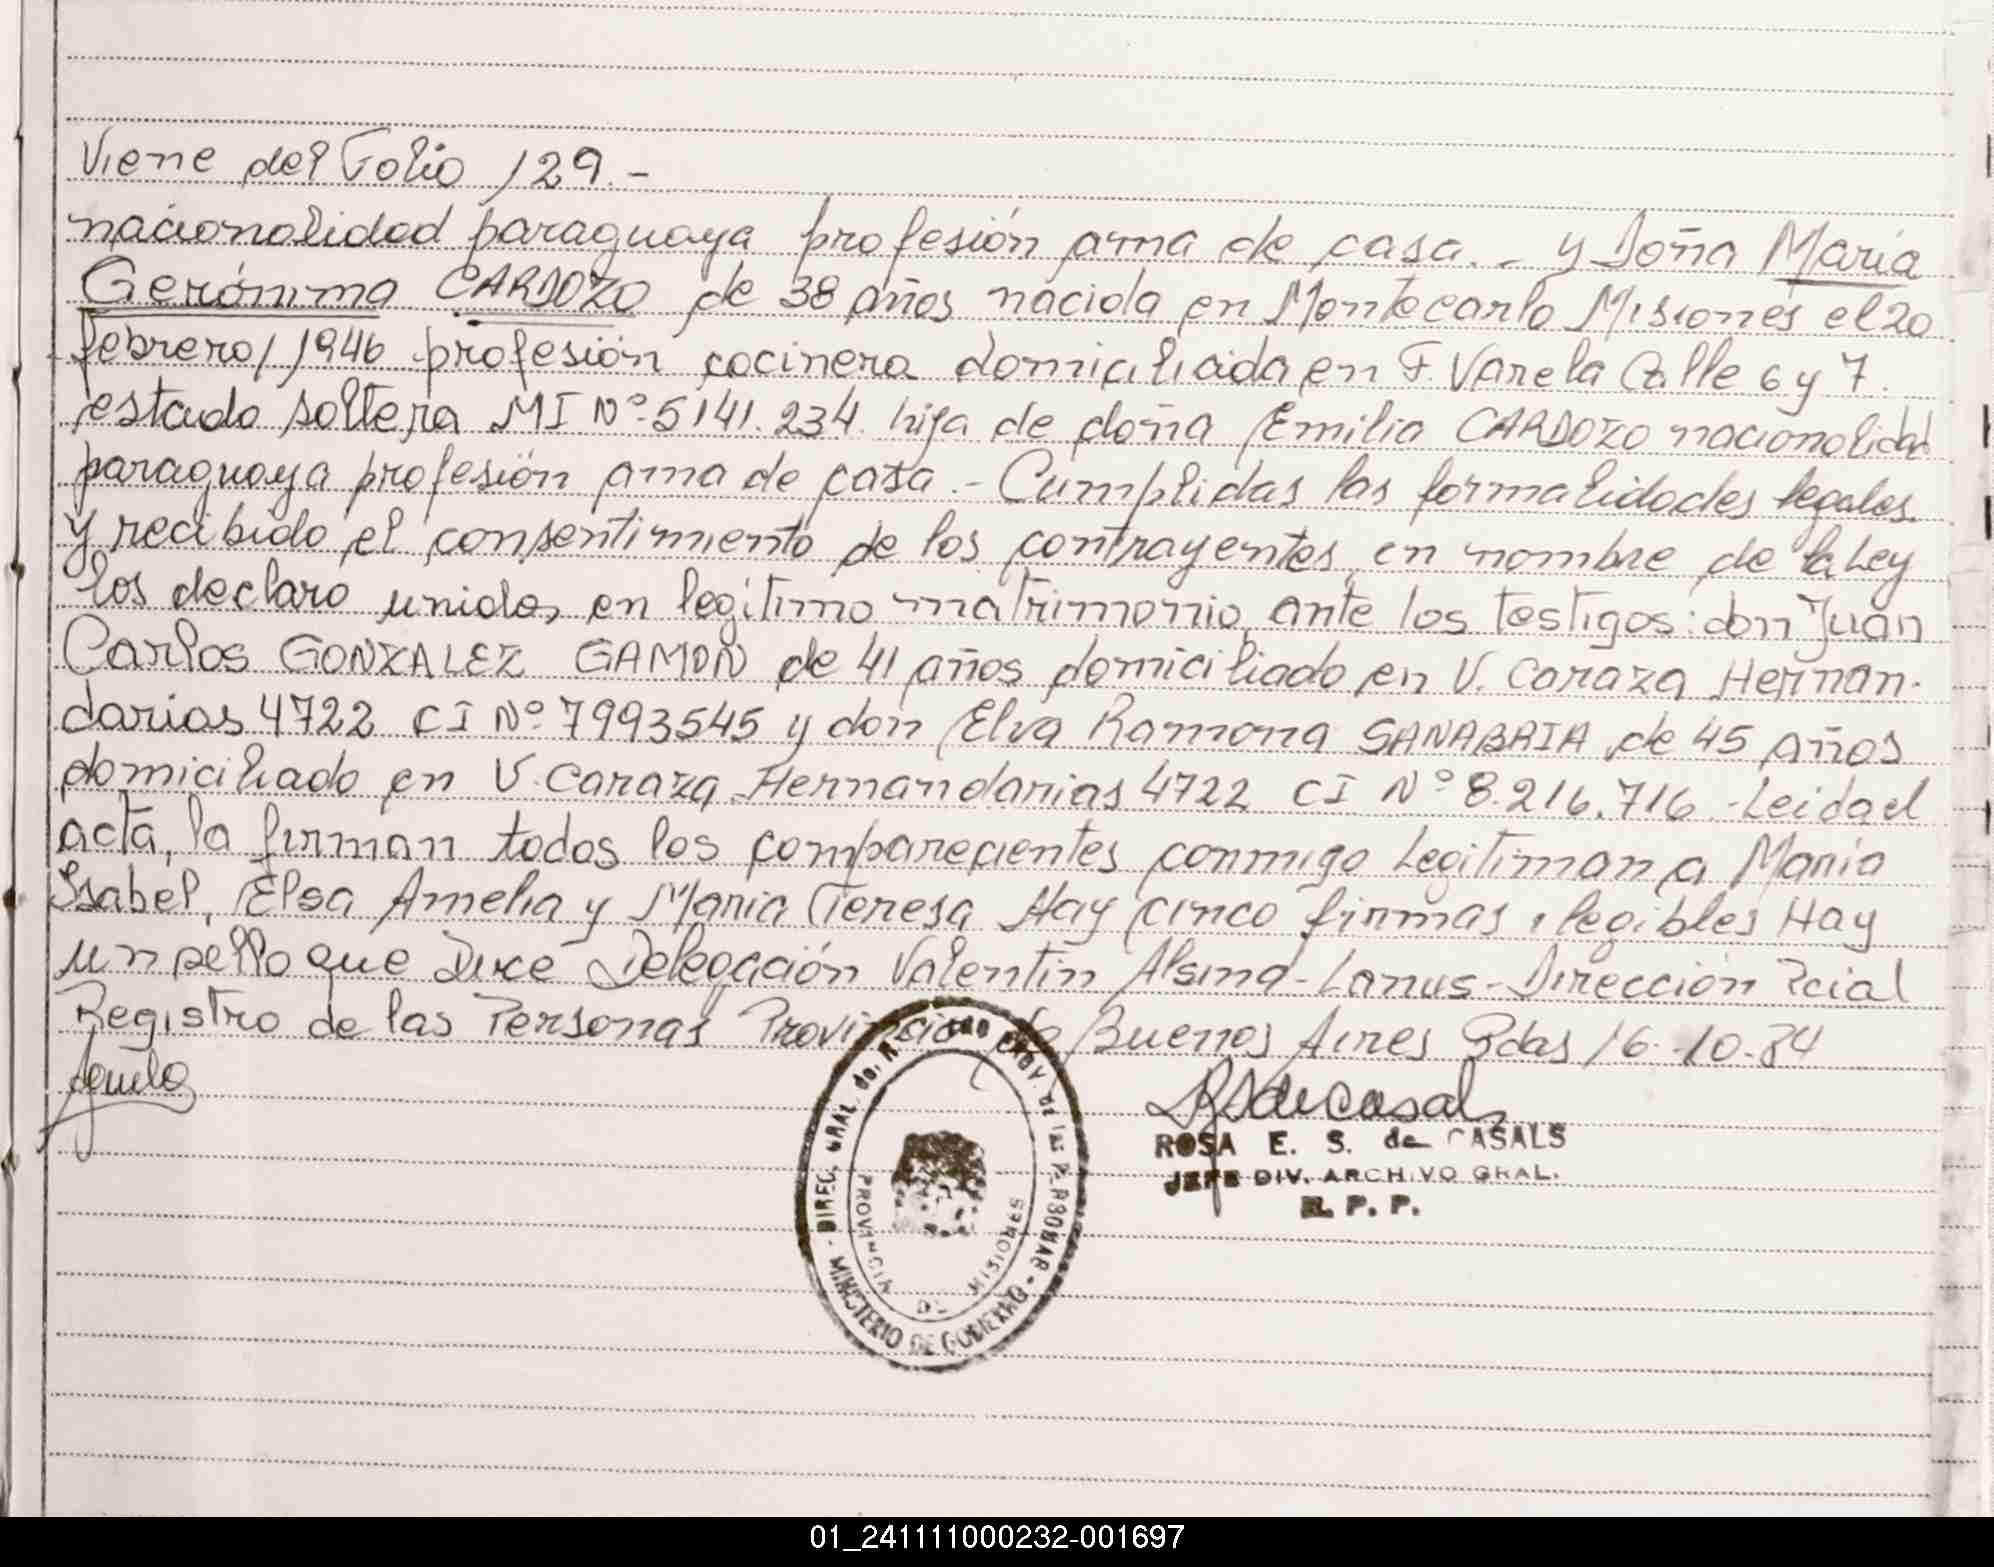 Viene del Folio 129.-
nacionalidad paraguaya profesión ama de casa.- y Doña María
Gerónima CARDOZO de 38 años nacida en Montecarlo Misiones el 20
febrero/1946 profesión cocinera domiciliada en F. Varela Calle 6 y 7.
estado soltera MI Nº 5141.234 hija de doña Emilia CARDOZO nacionalidad
paraguaya profesión ama de casa.- Cumplidas las formalidades legales
y recibido el consentimiento de los contrayentes, en nombre de la Ley
los declaro unidos en legítimo matrimonio, ante los testigos: don Juan
Carlos GONZALEZ GAMON de 41 años domiciliado en V. Caraza Hernan-
darias 4722 CI Nº 7993545 y don Elva Ramona SANABRIA de 45 años
domiciliado en V. Caraza Hernandarias 4722 CI Nº 8.216.716.- Leida el
acta, la firman todos los comparecientes conmigo Legitiman a María
Isabel, Elsa Amelia y María Teresa Hay cinco firmas ilegibles Hay
un sello que Dice Delegación Valentín Alsina-Lanus-Dirección Pcial
Registro de las Personas Provincia de Buenos Aires Pdas 16-10-84
ROSA E. S. de CASALS
JEFE DIV. ARCHIVO GRAL.
R. P. P.
DIREC. GRAL. PROV. DE las PERSONAS - MINISTERIO DE GOBIERNO -
PROVINCIA DE MISIONES
01_241111000232-001697